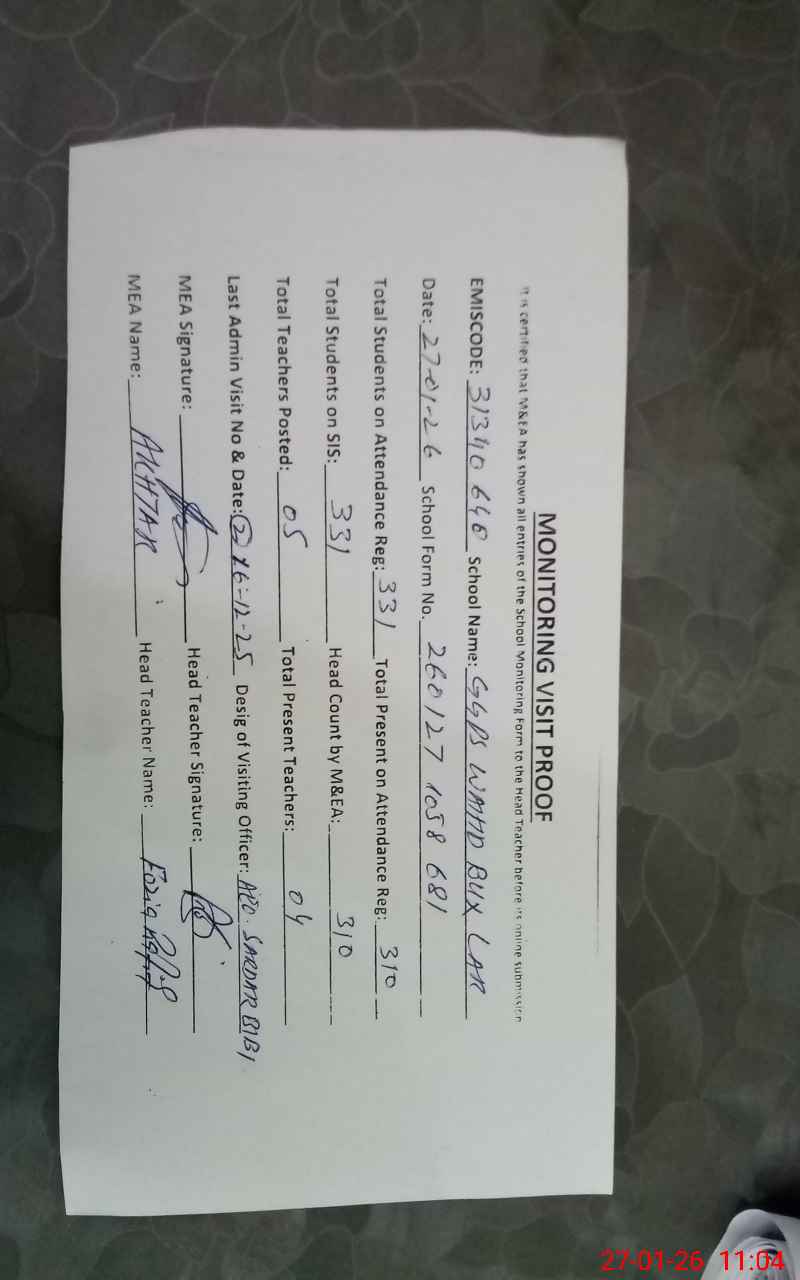 MONITORING VISIT PROOF
It is certified that M&EA has shown all entries of the School Monitoring Form to the Head Teacher before its online submission
EMISCODE: 31340646 School Name: GGPS WAHID BUX LAR
Date: 27-01-26 School Form No. 260127 1058 681
Total Students on Attendance Reg: 331 Total Present on Attendance Reg: 310
Total Students on SIS: 331 Head Count by M&EA: 310
Total Teachers Posted: 05 Total Present Teachers: 04
Last Admin Visit No & Date: (2) 16-12-25 Desig of Visiting Officer: AEO. SARDAR BIBI
MEA Signature: Head Teacher Signature:
MEA Name: AKHTAR Head Teacher Name: Fozia
27-01-26 11:04